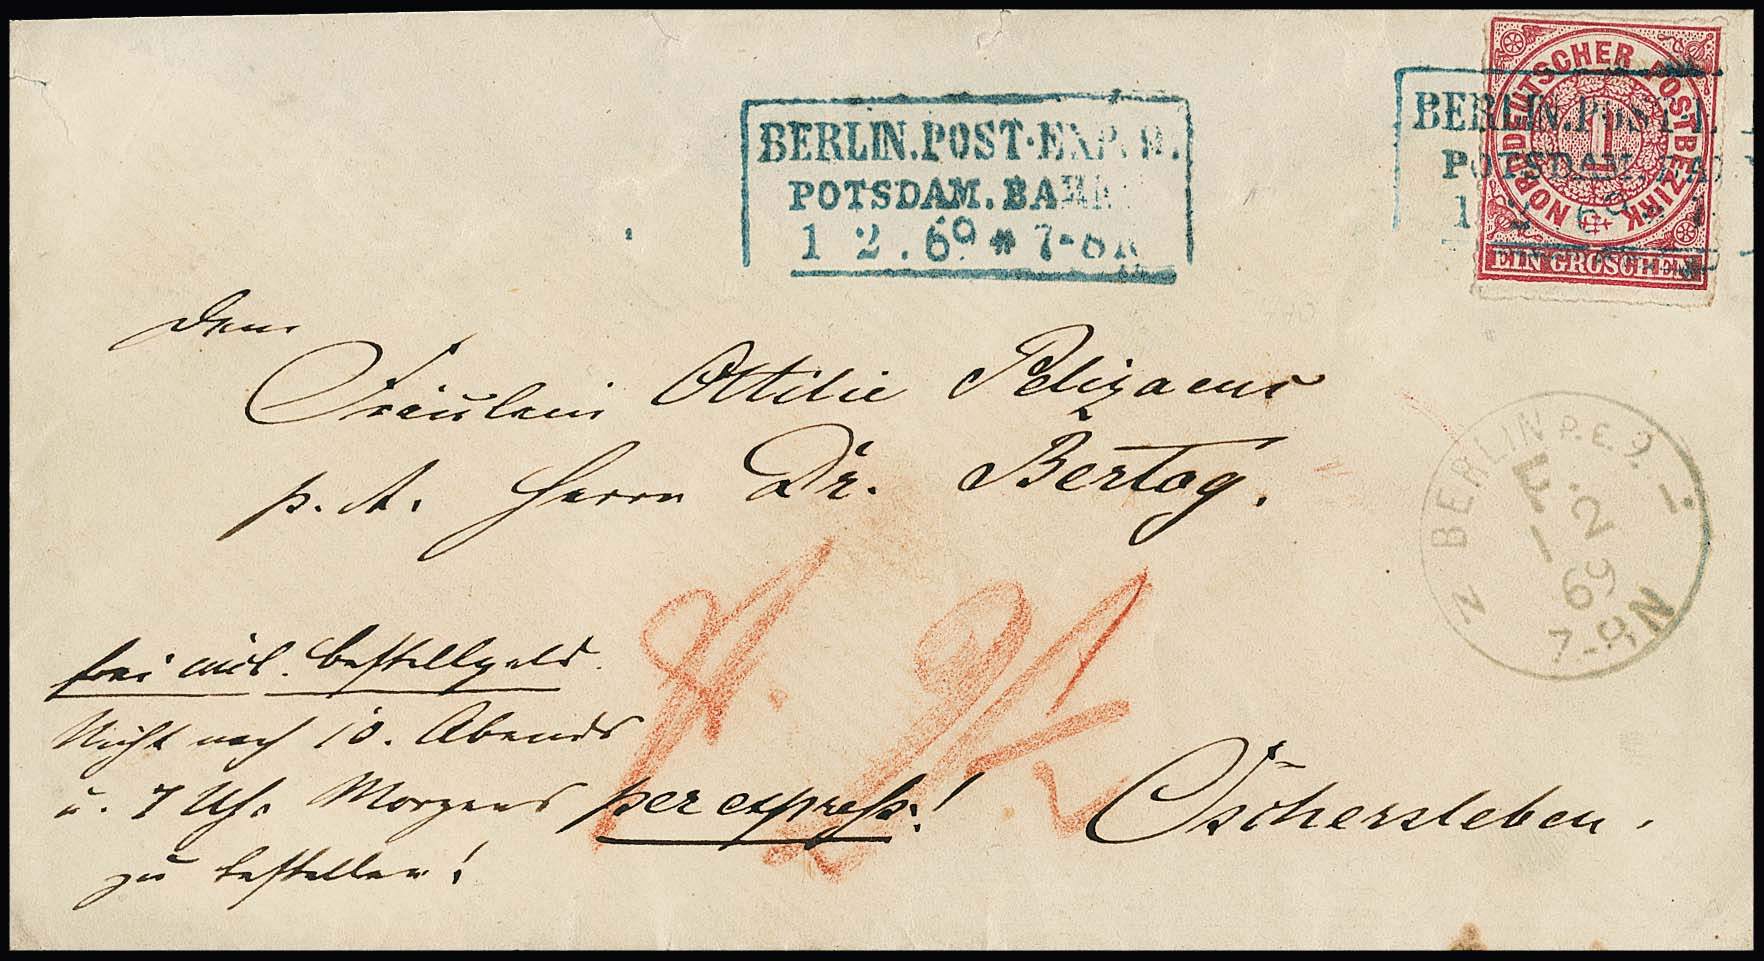 BERLIN.POST.EXP. 9.
POTSDAM. BAHN
1 2 . 69 * 7-8N
BERLIN.POST
POTSDAM. BA
1 2 69 7
NORDDEUTSCHER POSTBEZIRK
1
EIN GROSCHEN
Dem
Fräulein Ottilie Pelizaeus
p. A. Herrn Dr. Bertog.
BERLIN P.E. 9. I.
F.
1 2
69
7-8 N
N
frei incl. Bestellgeld.
Nicht nach 10. Abends
u. 7 Uhr Morgens per express!
zu bestellen!
Oschersleben.